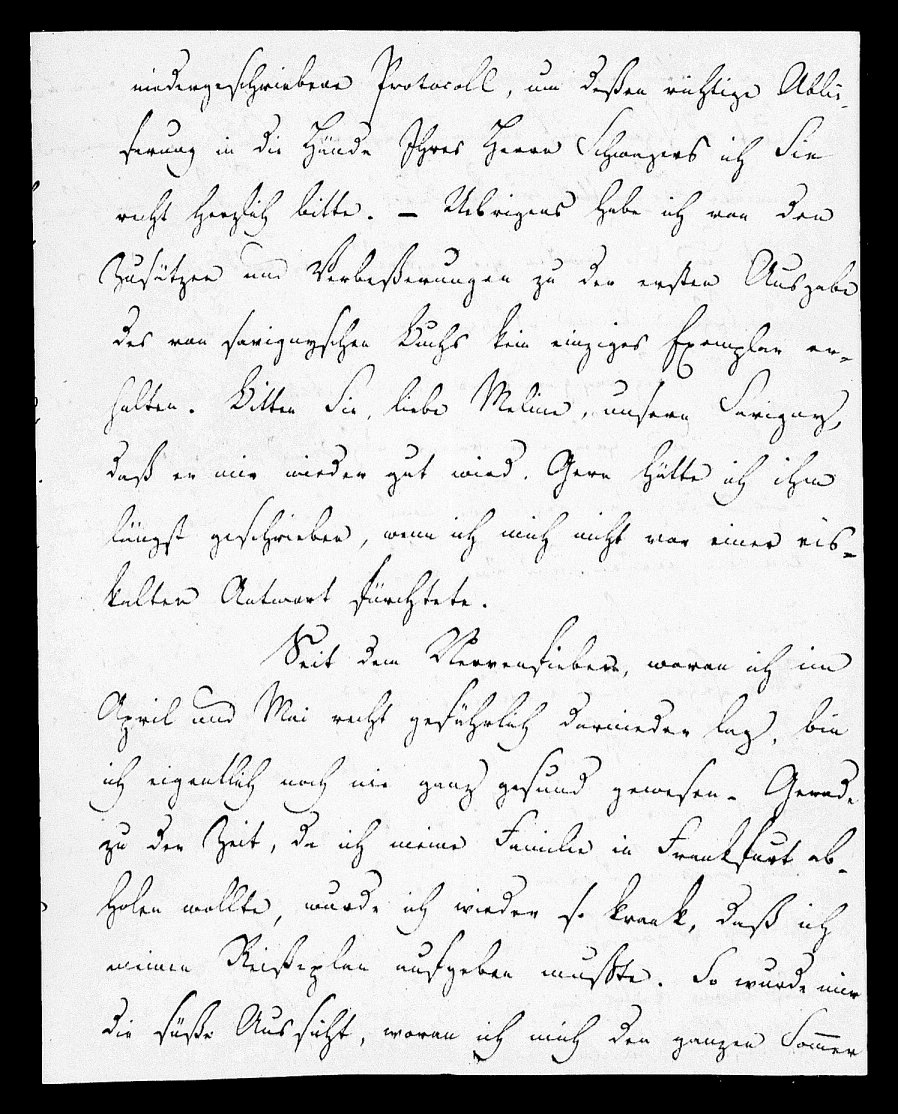 niedergeschriebene Protocoll, um deßen richtige Ablie-
ferung in die Hände Ihres Herrn Schwagers ich Sie
recht herzlich bitte. – Uebrigens habe ich von den
Zusätzen und Verbeßerungen zu der ersten Ausgabe
des von savignyschen Buchs kein einziges Exemplar er-
halten. Bitten Sie, liebe Meline, unsern Savigny,
daß er mir wieder gut wird. Gern hätte ich ihm
längst geschrieben, wenn ich mich nicht vor einer eis-
kalten Antwort fürchtete.
Seit dem Nervenfieber, woran ich im
April und Mai recht gefährlich darnieder lag, bin
ich eigentlich noch nie ganz gesund gewesen. Gerade
zu der Zeit, da ich meine Familie in Frankfurt ab-
holen wollte, wurde ich wieder so krank, daß ich
meinen Reißeplan aufgeben mußte. So wurde mir
die süße Aussicht, woran ich mich den ganzen Sommer